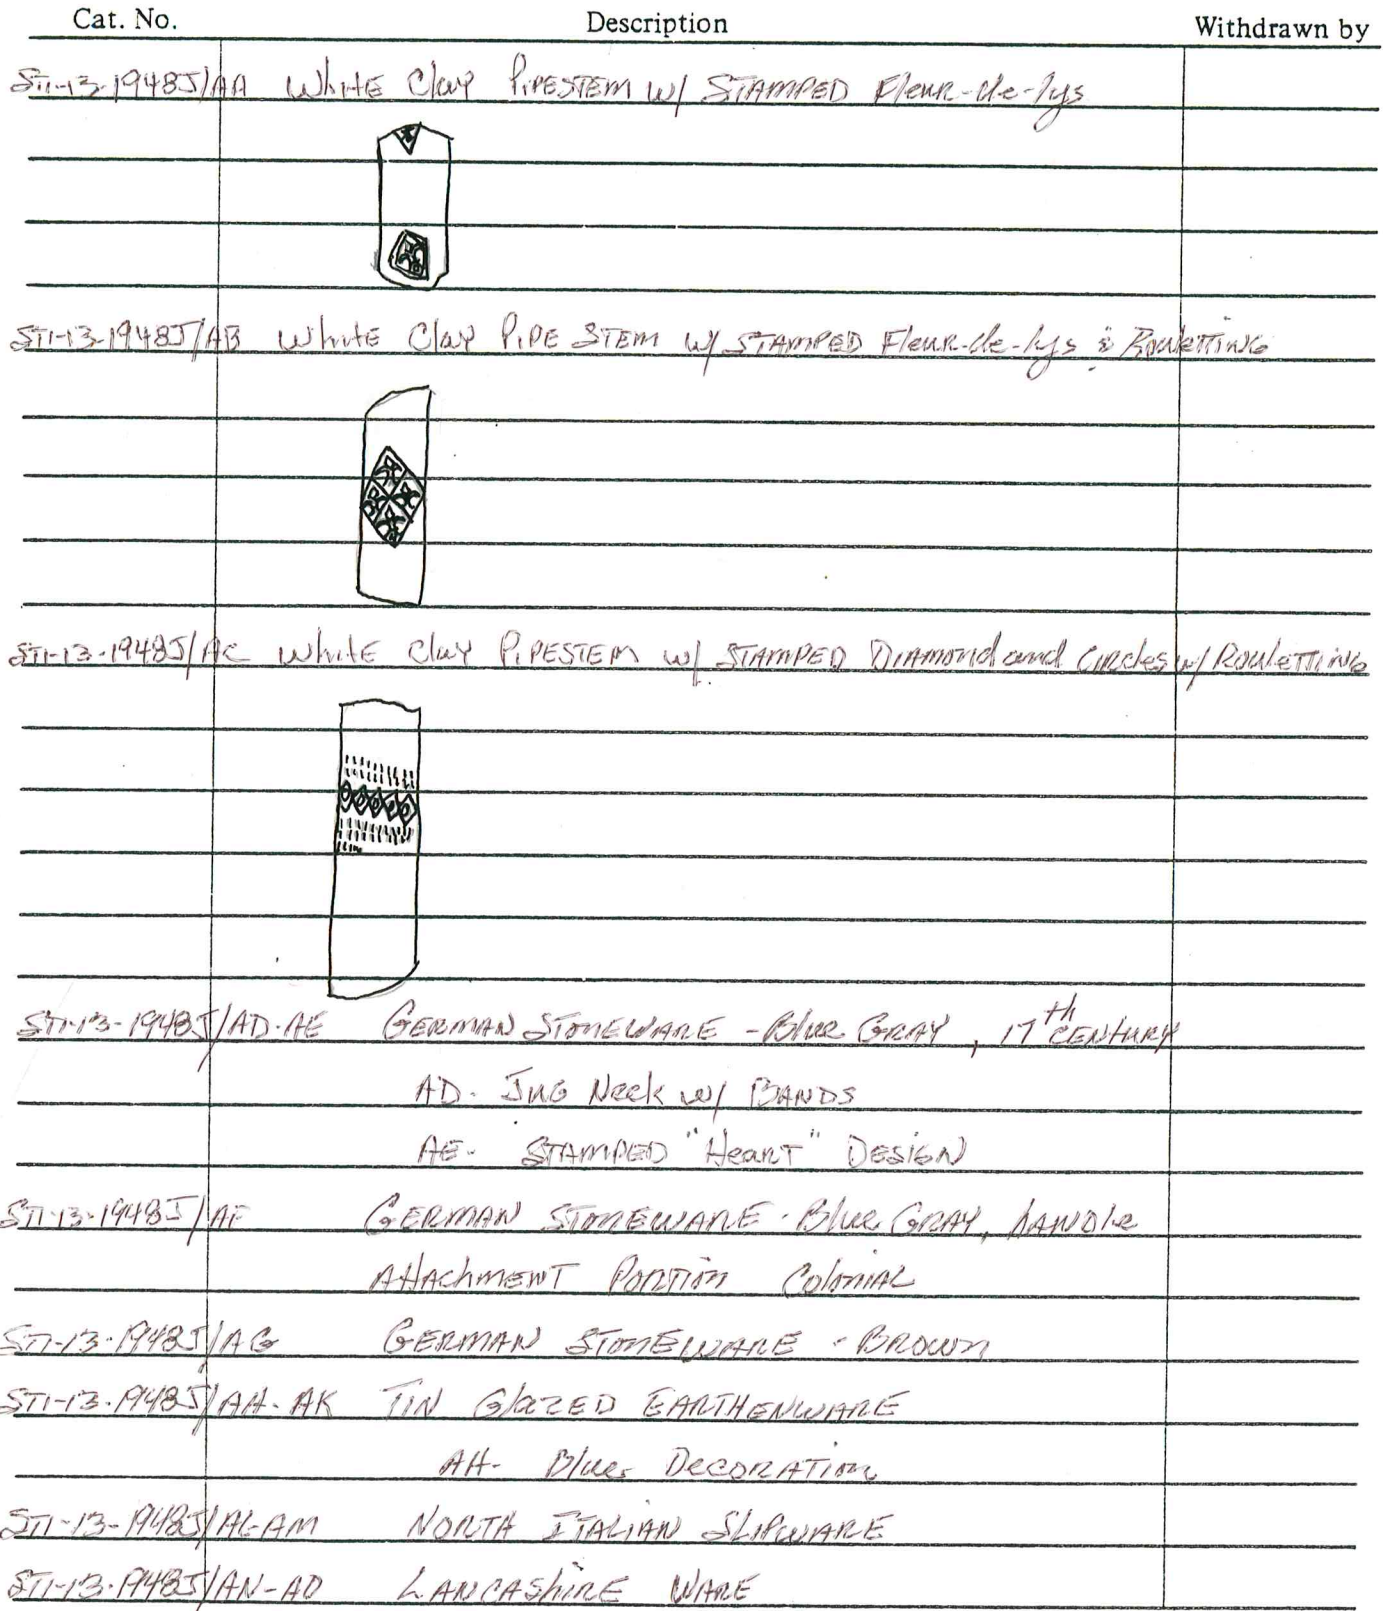 Cat. No. Description Withdrawn by
ST1-13-1948J/AA White Clay PIPESTEM w/ STAMPED Fleur-de-lys
ST1-13-1948J/AB White Clay PIPE STEM w/ STAMPED Fleur-de-lys & Rouletting
ST1-13-1948J/AC White Clay PIPESTEM w/ STAMPED DIAMOND and Circles w/ ROULETTING
ST1-13-1948J/AD-AE GERMAN STONEWARE - Blue GRAY, 17th CENTURY
AD- JUG Neck w/ BANDS
AE- STAMPED "HeART" DESIGN
ST1-13-1948J/AF GERMAN STONEWARE - Blue GRAY, HANDle
AttAchmENT PORTION Colonial
ST1-13-1948J/AG GERMAN STONEWARE - BROWN
ST1-13-1948J/AH-AK TIN GlAZED EARTHENWARE
AH- Blue DECORATION
ST1-13-1948J/AL-AM NORTH ITALIAN SLIPWARE
ST1-13-1948J/AN-AO LANCASHIRE WARE